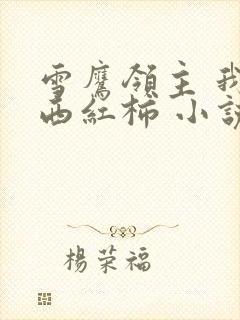 雪鷹領主 我
西紅柿 小說
楊荣福